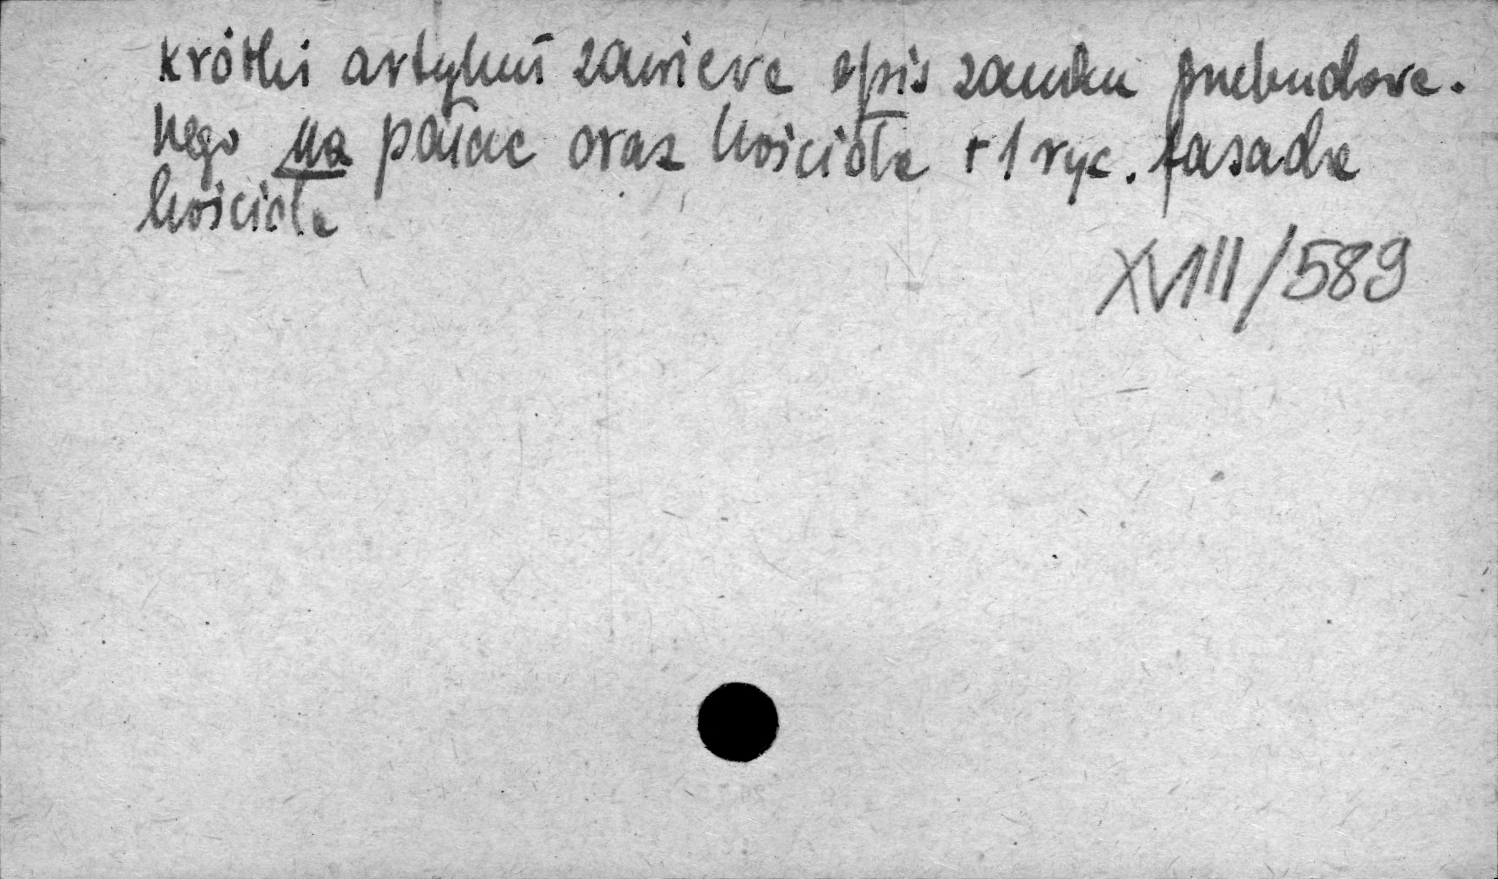 krótki artykuł zawiera opis zamku przebudowa-
nego na pałac oraz kościoła + 1 ryc. fasada
kościoła
XVIII/589